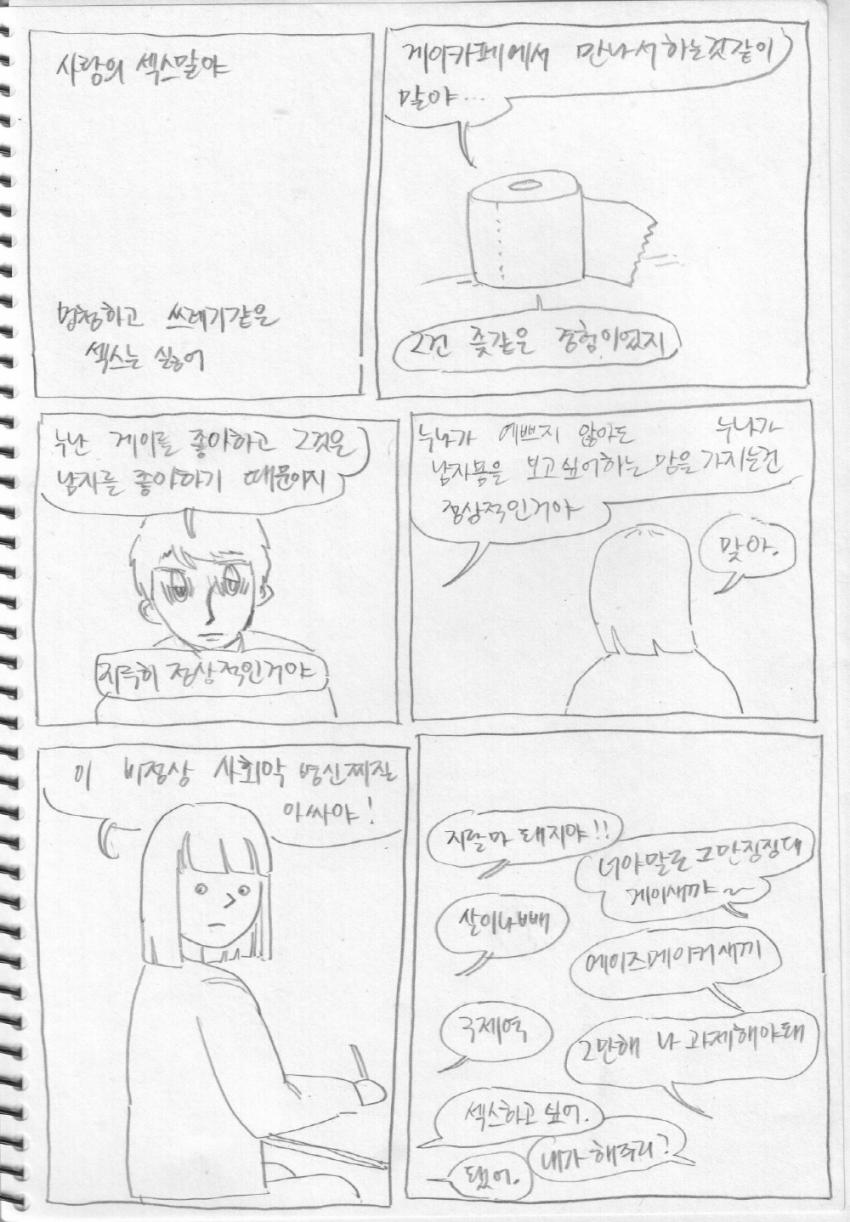 사랑의 섹스말야
멍청하고 쓰레기같은
섹스는 싫어
게이카페에서 만나서하는것같이
말야...
그건 좆같은 경험이었지
누난 게이를 좋아하고 그것은
남자를 좋아하기 때문이지
지극히 정상적인거야
누나가 예쁘지 않아도 누나가
남자몸을 보고싶어하는 맘을 가지는건
정상적인거야
맞아.
이 비정상 사회악 병신찌질
아싸야!
지랄마 돼지야!!
너야말로 그만징징대
게이새꺄~
살이나빼
에이즈메이커새끼
국제역
그만해 나 과제해야돼
섹스하고싶어.
내가 해주리?
됐어.